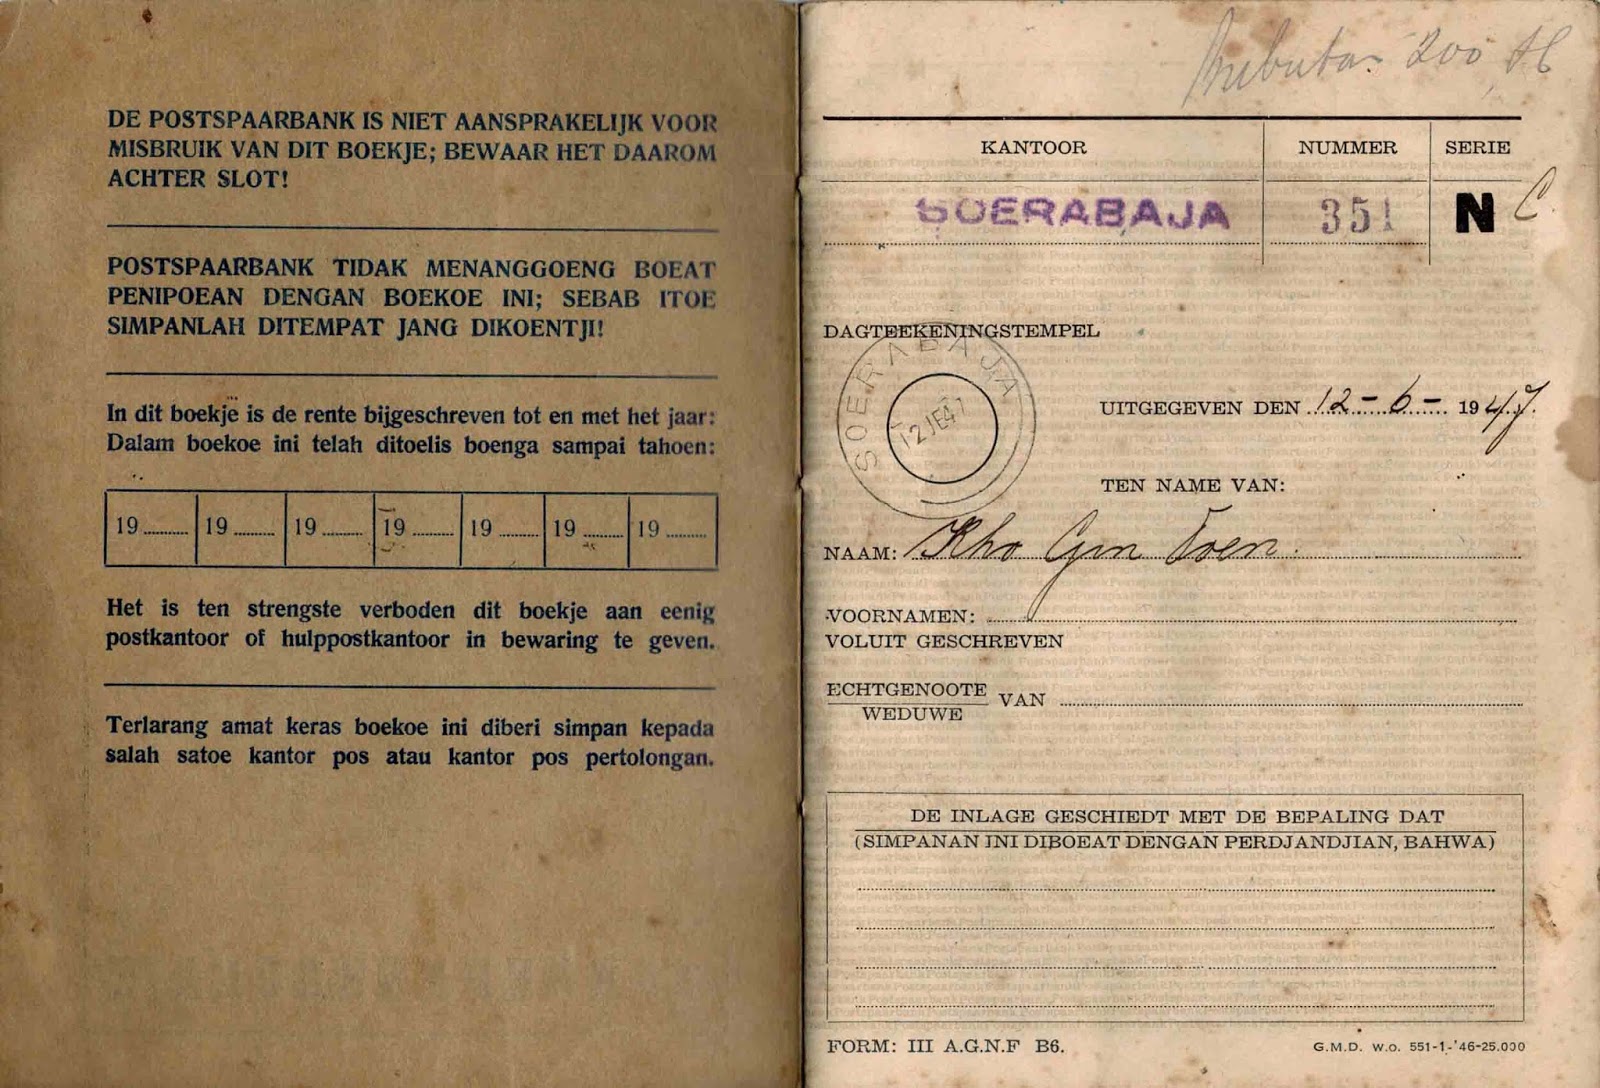 DE POSTSPAARBANK IS NIET AANSPRAKELIJK VOOR
MISBRUIK VAN DIT BOEKJE; BEWAAR HET DAAROM
ACHTER SLOT!
POSTSPAARBANK TIDAK MENANGGOENG BOEAT
PENIPOEAN DENGAN BOEKOE INI; SEBAB ITOE
SIMPANLAH DITEMPAT JANG DIKOENTJI!
In dit boekje is de rente bijgeschreven tot en met het jaar:
Dalam boekoe ini telah ditoelis boenga sampai tahoen:
19 ........ 19 ........ 19 ........ 19 ........ 19 ........ 19 ........ 19 ........
Het is ten strengste verboden dit boekje aan eenig
postkantoor of hulppostkantoor in bewaring te geven.
Terlarang amat keras boekoe ini diberi simpan kepada
salah satoe kantor pos atau kantor pos pertolongan.
200
KANTOOR NUMMER SERIE
SOERABAJA 351 N C
DAGTEEKENINGSTEMPEL
SOERABAJA
12 JE 47
UITGEGEVEN DEN 12-6-1947.
TEN NAME VAN:
NAAM: Kho Gin Toen.
VOORNAMEN:
VOLUIT GESCHREVEN
ECHTGENOOTE VAN
WEDUWE
DE INLAGE GESCHIEDT MET DE BEPALING DAT
(SIMPANAN INI DIBOEAT DENGAN PERDJANDJIAN, BAHWA)
FORM: III A.G.N.F B6.
G.M.D. w.o. 551-1-'46-25.000